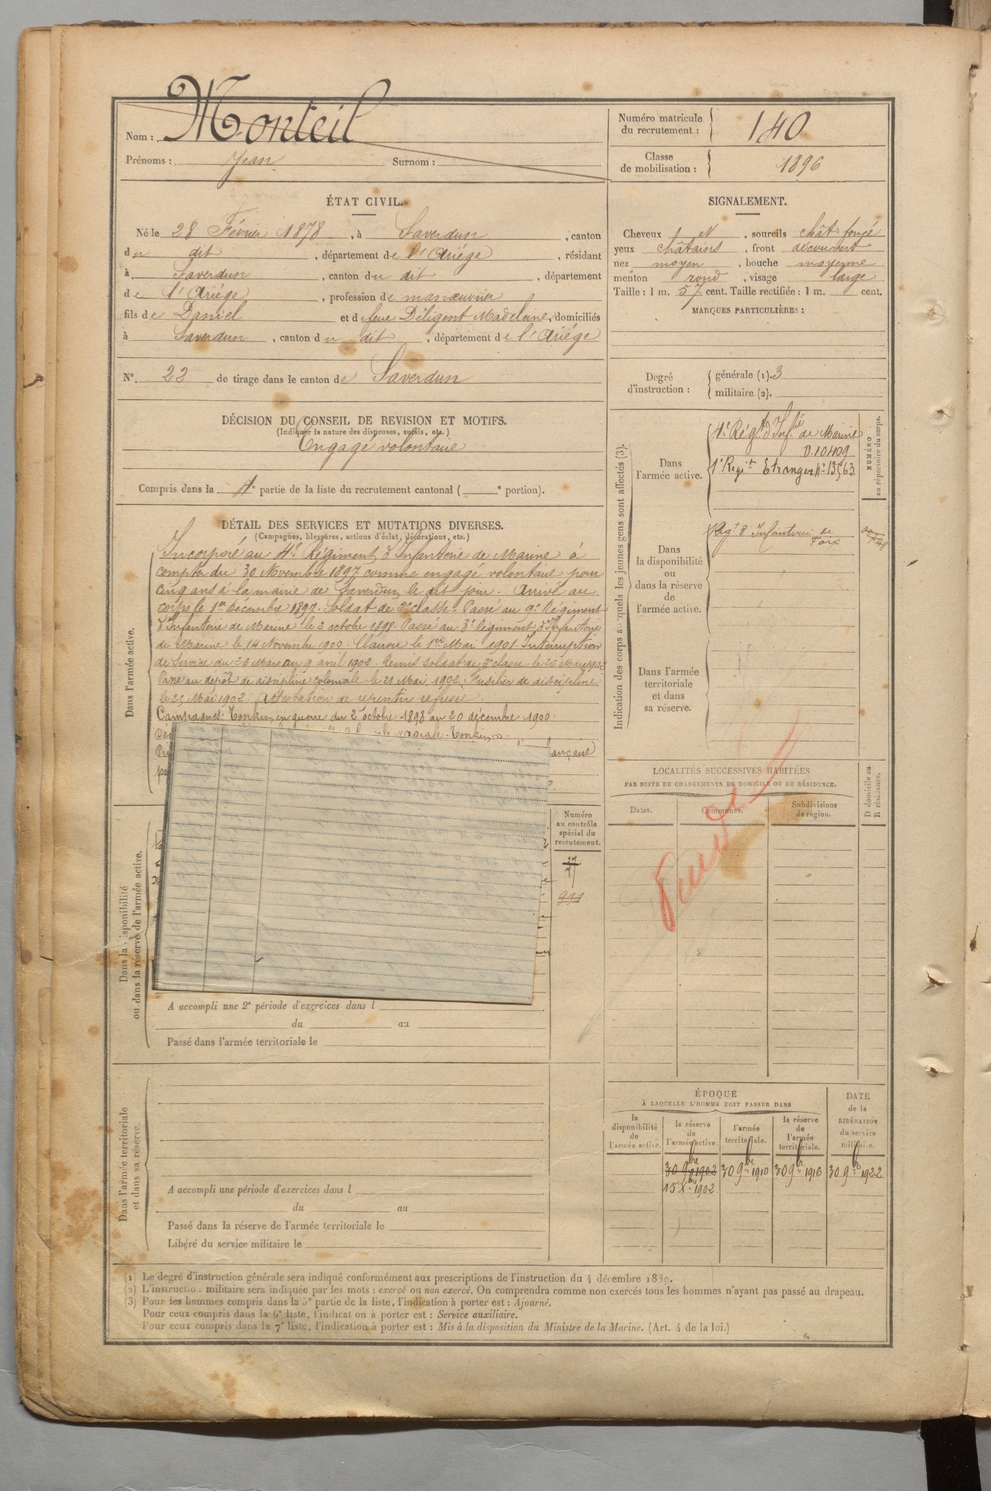 Nom : Monteil
Prénoms : Jean Surnom :
Numéro matricule du recrutement : 140
Classe de mobilisation : 1896
ÉTAT CIVIL.
Né le 28 Février 1878, à Saverdun, canton
du dit, département de l'Ariège, résidant
à Saverdun, canton du dit, département
de l'Ariège, profession de manœuvrier
fils de Daniel et de feue Déligent Madeleine, domiciliés
à Saverdun, canton du dit, département de l'Ariège
N° 22 de tirage dans le canton de Saverdun
SIGNALEMENT.
Cheveux N, sourcils chât foncé
yeux châtains, front découvert
nez moyen, bouche moyenne
menton rond, visage large
Taille : 1 m. 57 cent. Taille rectifiée : 1 m. cent.
MARQUES PARTICULIÈRES :
Degré d'instruction : générale (1). 3
militaire (2).
DÉCISION DU CONSEIL DE REVISION ET MOTIFS.
(Indiquer la nature des dispenses, sursis, etc.)
Engagé volontaire
Compris dans la partie de la liste du recrutement cantonal ( e portion).
DÉTAIL DES SERVICES ET MUTATIONS DIVERSES.
(Campagnes, blessures, actions d'éclat, décorations, etc.)
Dans l'armée active.
Incorporé au 4e Régiment d'Infanterie de Marine à
compter du 30 Novembre 1897 comme engagé volontaire pour
cinq ans à la mairie de Saverdun le dit jour. Arrivé au
corps le 1er décembre 1897. Soldat de 2e classe. Passé au 9e Régiment
d'Infanterie de Marine le 2 octobre 1898. Passé au 3e Régiment d'Infanterie
de Marine le 14 Novembre 1900. Clairon le 1er Mai 1901. Interruption
de Service du 28 Mars au 9 avril 1902. Remis soldat de 2e classe le
Passé au dépôt de discipline coloniale le 21 Mai 1902. Fusilier de discipline
le 25 Mai 1902. Attestation de repentir refusé
Campagnes: Tonkin, en guerre du 2 octobre 1898 au 20 décembre 1900.
coloniale Tonkin
ançaise
Indication des corps auxquels les jeunes gens sont affectés (3).
NUMÉRO au répertoire du corps.
Dans l'armée active.
4e Régt d'Infie de Marine
D. 10409
1er Regit Etranger No 13563
Dans la disponibilité ou dans la réserve de l'armée active.
Regt d'Infanterie de Foix
Dans l'armée territoriale et dans sa réserve.
LOCALITÉS SUCCESSIVES HABITÉES
PAR SUITE DE CHANGEMENTS DE DOMICILE OU DE RÉSIDENCE.
Dates. Communes. Subdivisions de région. D. domicile ou R. résidence.
Dans la disponibilité ou dans la réserve de l'armée active.
Numéro au contrôle spécial du recrutement.
A accompli une 2e période d'exercices dans l
du au
Passé dans l'armée territoriale le
Dans l'armée territoriale et dans sa réserve.
A accompli une période d'exercices dans l
du au
Passé dans la réserve de l'armée territoriale le
Libéré du service militaire le
ÉPOQUE
À LAQUELLE L'HOMME DOIT PASSER DANS
la disponibilité de l'armée active.
la réserve de l'armée active.
l'armée territoriale.
la réserve de l'armée territoriale.
DATE de la LIBÉRATION du service militaire.
30 9bre 1902 30 9bre 1910 30 9bre 1916 30 9bre 1922
15 Xbre 1902
(1) Le degré d'instruction générale sera indiqué conformément aux prescriptions de l'instruction du 4 décembre 1889.
(2) L'instruction militaire sera indiquée par les mots : exercé ou non exercé. On comprendra comme non exercés tous les hommes n'ayant pas passé au drapeau.
(3) Pour les hommes compris dans la 5e partie de la liste, l'indication à porter est : Ajourné.
Pour ceux compris dans la 6e liste, l'indication à porter est : Service auxiliaire.
Pour ceux compris dans la 7e liste, l'indication à porter est : Mis à la disposition du Ministre de la Marine. (Art. 4 de la loi.)